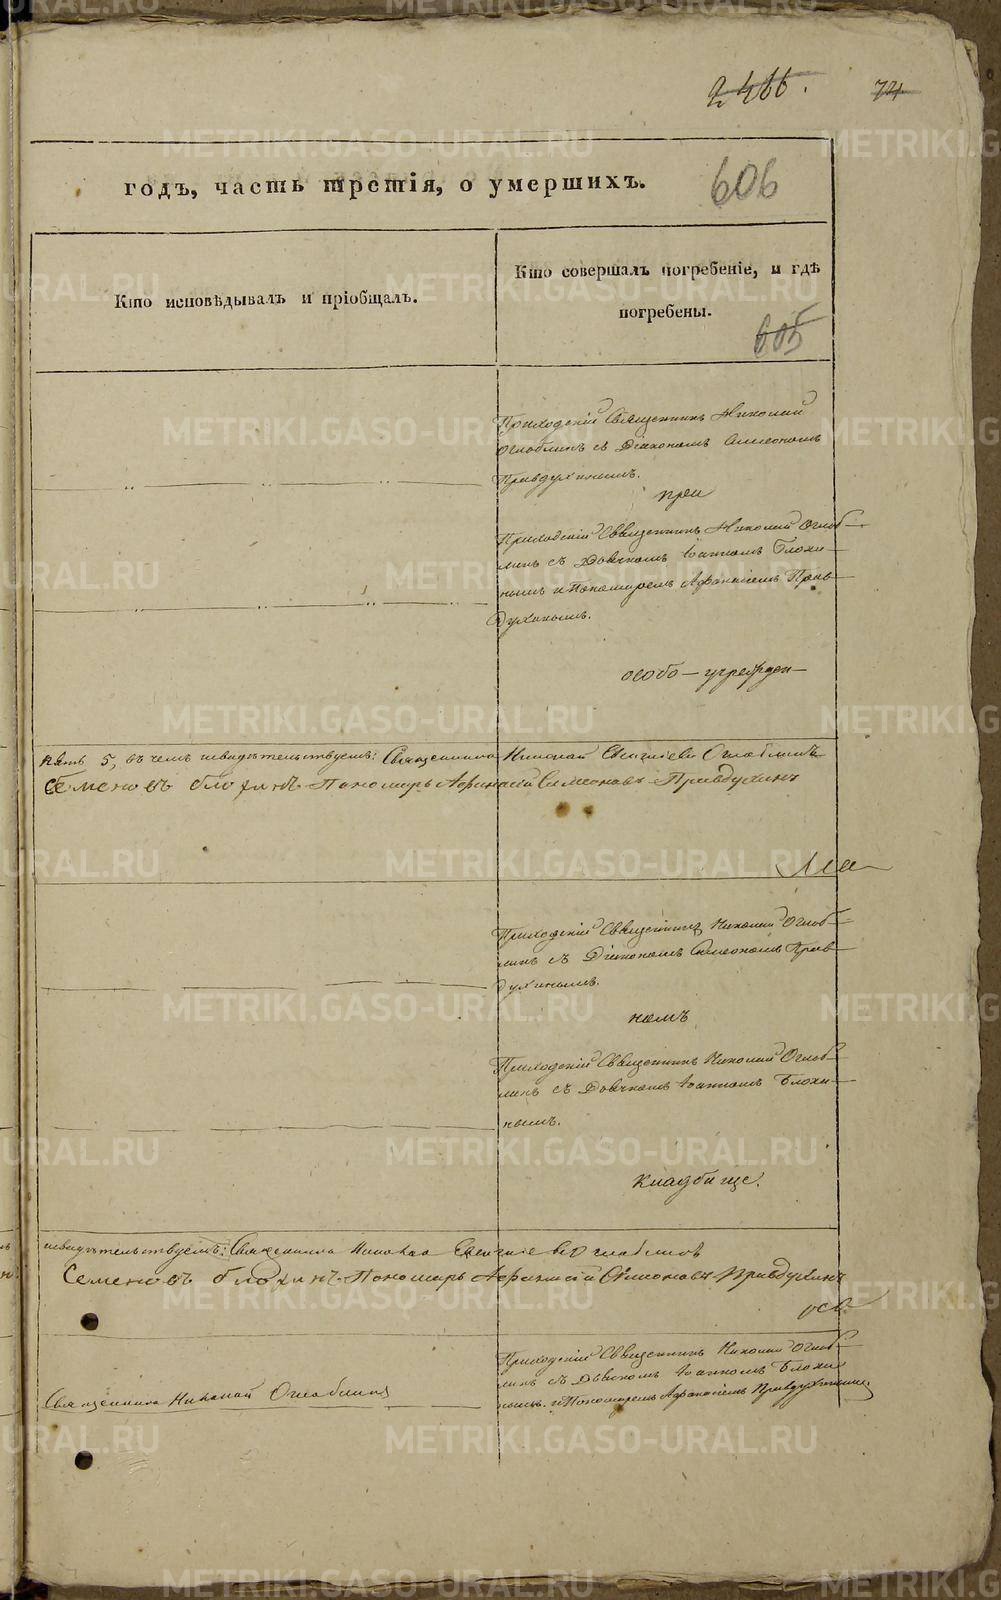 2466. 74
годъ, часть третія, о умершихъ. 606
Кто исповѣдывалъ и пріобщалъ.
Кто совершалъ погребеніе, и гдѣ
погребены.
605
Приходскій Священникъ Николай
Оглоблинъ съ Діакономъ Симеономъ
Правдухинымъ.
при
Приходскій Священникъ Николай Оглоб-
линъ съ Дьячкомъ Іоанномъ Блохи-
нымъ и Пономаремъ Афанасіемъ Прав-
духинымъ.
особо - учрежден-
пять 5, въ чемъ свидѣтельствуемъ: Священникъ Николай Оглоблинъ
Семеновъ Блохинъ Пономарь Афанасій Симеоновъ Правдухинъ
Приходскій Священникъ Николай Оглоб-
линъ съ Діакономъ Симеономъ Прав-
духинымъ.
номъ
Приходскій Священникъ Николай Оглоб-
линъ съ Дьячкомъ Іоанномъ Блохи-
нымъ.
кладбище.
свидѣтельствуемъ: Священникъ Николай Оглоблинъ
Семеновъ Блохинъ Пономарь Афанасій Симеоновъ Правдухинъ
осо
Приходскій Священникъ Николай Оглоб-
линъ съ Дьячкомъ Іоанномъ Блохи-
Священникъ Николай Оглоблинъ
нымъ и Пономаремъ Афанасіемъ Правдухинымъ
METRIKI.GASO-URAL.RU